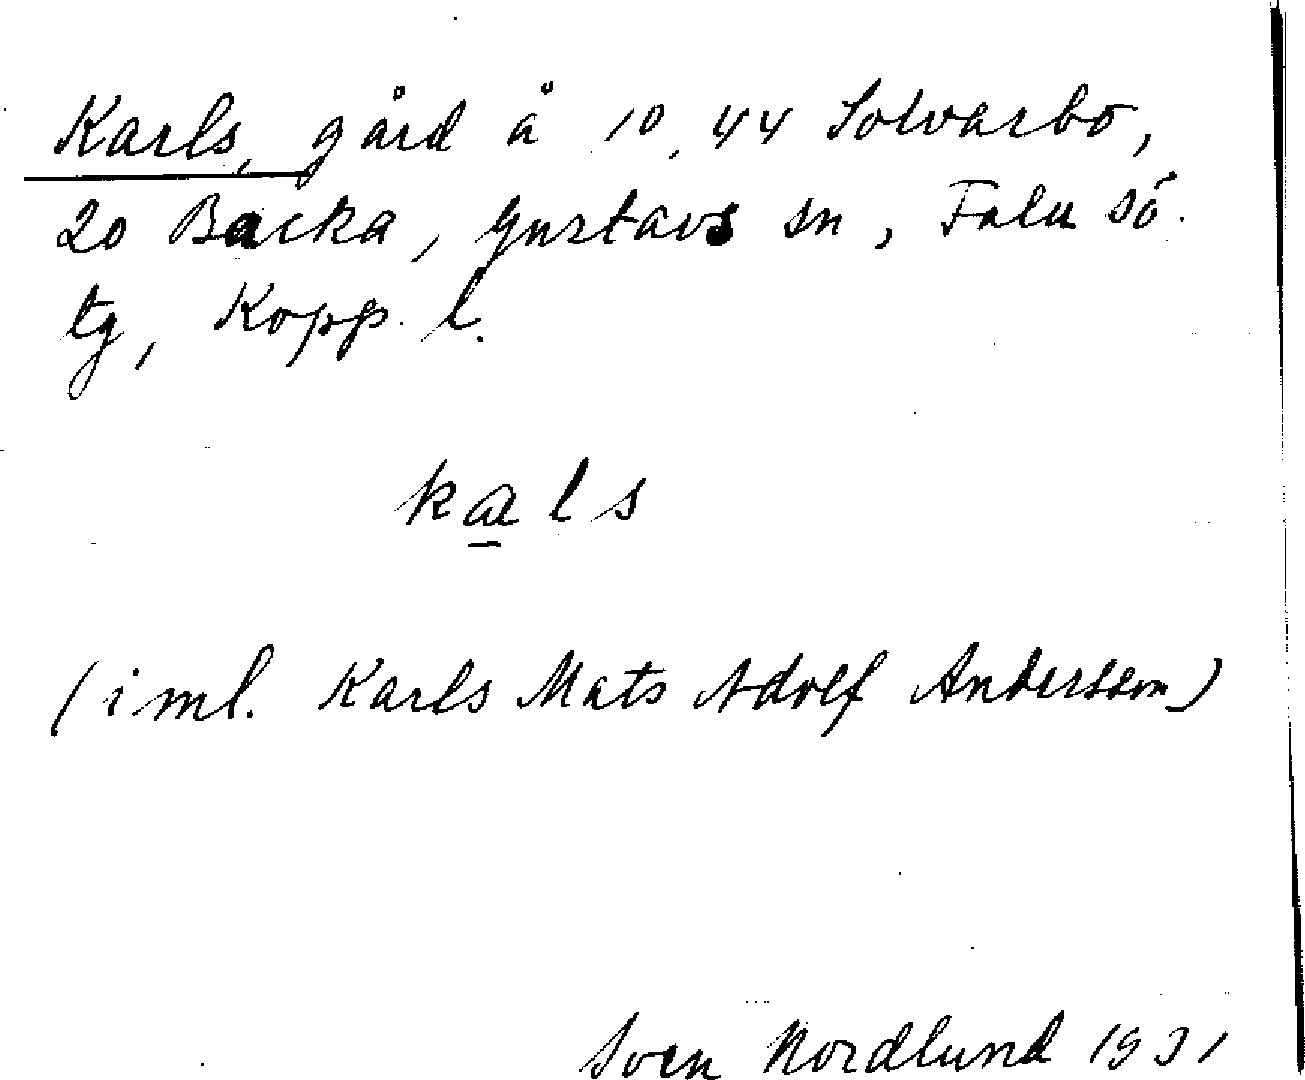 Karls, gård å 10, 44 Solvarbo,
20 Backa, Gustavs sn, Falu sö.
tg, Kopp. l.
kals
(iml. Karls Mats Adolf Andersson)
Sven Nordlund 1931